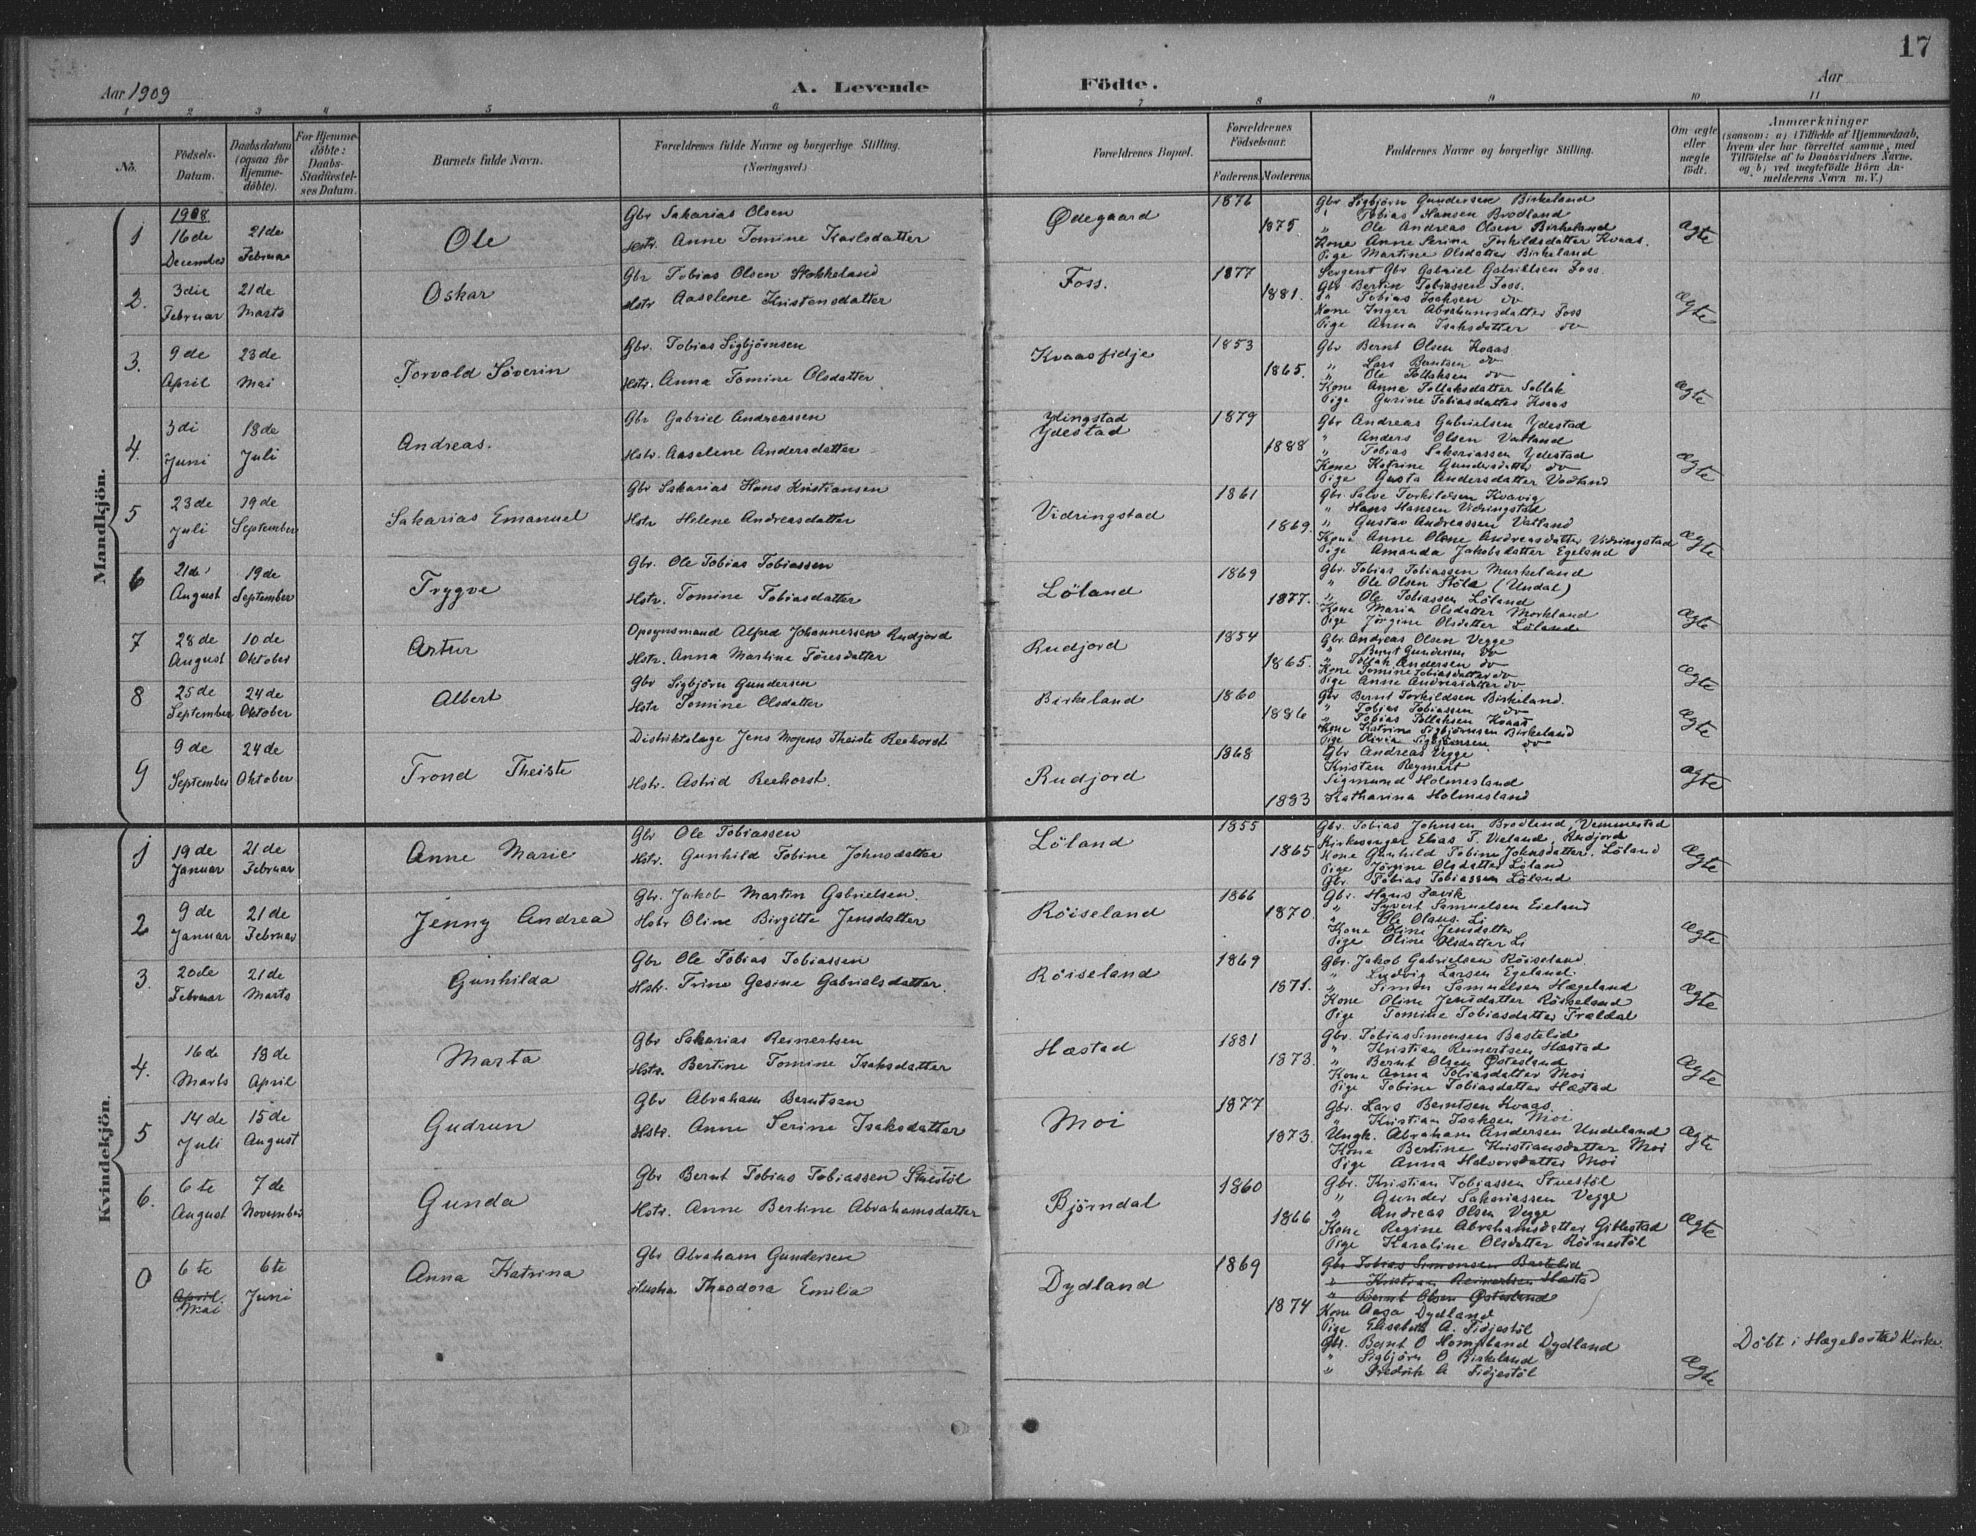 17
Aar 1909
A. Levende Födte.
Aar
1 2 3 4 5 6 7 8 9 10 11
No.
Födsels-Datum.
Daabsdatum (ogsaa for Hjemme-döbte).
For Hjemme-döbte: Daabs-Stadfæstel-ses Datum.
Barnets fulde Navn.
Forældrenes fulde Navne og borgerlige Stilling.
(Næringsvei.)
Forældrenes Bopæl.
Forældrenes Födselsaar.
Faderens. Moderens.
Faddernes Navne og borgerlige Stilling.
Om ægte eller uægte födt.
Anmærkninger
(saasom: a) i Tilfælde af Hjemmedaab,
hvem der har forrettet samme, med
Tilföielse af to Daabsvidners Navne.
og b) ved uægtefödte Börn An-
melderens Navn m. V.)
Mandkjön.
1
1908
16de December
21de Februar
Ole
Gbr Sakarias Olsen
Hstr. Anne Tomine Karlsdatter
Ødegaard
1876
1875
Gbr Sigbjörn Gundersen Birkeland
" Tobias Hansen Brodland
" Ole Andreas Olsen Birkeland
Kone Anne Serina Torkildsdatter Kvaas.
Pige Martine Olsdatter Birkeland
Ægte
2.
3die Februar
21de Marts
Oskar
Gbr Tobias Olsen Stokkeland
Hstr Aaselene Kristensdatter
Foss.
1877
1881.
Sergent Gbr Gabriel Gabrielsen Foss.
Gbr Bertin Tobiassen Foss.
" Tobias Isaksen do
Kone Inger Abrahamsdatter Foss
Pige Anna Isaksdatter do
Ægte
3.
9de April
23de Mai
Torvald Söverin
Gbr. Tobias Sigbjörnsen
Hstr. Anna Tomine Olsdatter
Kvaasfidje
1853
1865.
Gbr Bernt Olsen Kvaas
" Lars Berntsen do
" Ole Tollaksen do
Kone Anne Tollaksdatter
Pige Gurine Tobiasdatter Kvaas
Ægte
4.
3di Juni
18de Juli
Andreas.
Gbr Gabriel Andreassen
Hstr. Aaselene Andersdatter
Ydestad
1879
1888
Gbr Andreas Gabrielsen Ydestad
" Anders Olsen Vatland
" Tobias Sakariassen Ydestad
Kone Katrine Gundersdatter do
Pige Gusta Andersdatter Vatland
Ægte
5
23de Juli
19de September
Sakarias Emanuel
Gbr Sakarias Hans Kristiansen
Hstr Helene Andreasdatter
Vidringstad
1861
1869.
Gbr. Salve Torkildsen Kvavig
" Hans Hansen Vidringstad
" Gustav Andreassen Vatland
Kone Anne Oline Andreasdatter Vidringstad
Pige Amanda Jakobsdatter Egeland
Ægte
6
21de August
19de September
Trygve
Gbr. Ole Tobias Tobiassen
Hstr. Tomine Tobiasdatter
Löland
1869
1877.
Gbr. Tobias Tobiassen Murkeland
" Ole Olsen Stöla (Undal)
" Ole Tobiassen Löland
Kone Maria Olsdatter Morkland
Pige Jörgine Olsdatter Löland
Ægte
7
28de August
10de Oktober
Artur
Opsynsmand Alfred Johannessen Rudjord
Hstr. Anna Martine Töresdatter
Rudjord
1854
1865.
Gbr. Andreas Olsen Vegge
" Bernt Gundersen do
" Tollak Andersen do
Kone Tomine Tobiasdatter do
Pige Anne Andreasdatter do
Ægte
8
25de September
24de Oktober
Albert
Gbr Sigbjörn Gundersen
Hstr Tomine Olsdatter
Birkeland
1860
1886
Gbr Bernt Torkildsen Birkeland.
" Tobias Tobiassen do
" Tobias Tollaksen Kvaas
Kone Katrine Sigbjörnsen Birkeland
Pige Olivia Sigbjörnsen do
Ægte
9
9de September
24de Oktober
Trond Theiste
Distriktslæge Jens Mojens Theiste Reehorst
Hstr. Astrid Reehorst.
Rudjord
1868
1883
Gbr Andreas Vegge
Kristen Reymert
Sigmund Holmesland
Katharina Holmesland
Ægte
Kvindekjön.
1
19de Januar
21de Februar
Anne Marie
Gbr Ole Tobiassen
Hstr. Gunhild Tobine Johnsdatter
Löland
1855
1865
Gbr. Tobias Johnsen Brodland, Vemmestad
Kirkesanger Elias T. Vieland, Rudjord
Kone Gunhild Tobine Johnsdatter, Löland
Pige Jörgine Olsdatter Löland
Gbr. Tobias Tobiassen Löland
Ægte
2
9de Januar
21de Februar
Jenny Andrea
Gbr. Jakob Martin Gabrielsen.
Hstr Oline Birgitte Jensdatter
Röiseland
1866
1870.
Gbr. Hans Favik
" Syvert Samuelsen Eieland
" Ole Olaus. Li
Kone Oline Jensdatter
Pige Oline Olsdatter Li
Ægte
3
20de Februar
21de Marts
Gunhilda
Gbr Ole Tobias Tobiassen
Hstr. Trine Gesine Gabrielsdatter
Röiseland
1869
1871.
Gbr. Jakob Gabrielsen Röiseland
" Ludvig Larsen Egeland.
" Simon Samuelsen Hægeland
Kone Oline Jensdatter Röiseland
Pige Tomine Tobiasdatter Trældal
Ægte
4.
16de Marts
18de April
Marta
Gbr Sakarias Reinertsen
Hstr. Bertine Tomine Isaksdatter
Hæstad
1881
1873.
Gbr. Tobias Simonsen Bastelid
" Kristian Reinertsen Hæstad
" Bernt Olsen Østesland
Kone Anna Tobiasdatter Moi
Pige Tobine Tobiasdatter Hæstad
Ægte
5
14de Juli
15de August
Gudrun
Gbr Abraham Berntsen
Hstr. Anne Serine Isaksdatter
Moi
1877
1873.
Gbr. Lars Berntsen Kvaas.
" Kristian Isaksen Moi
Ungk. Abraham Andersen Undeland
Kone Bertine Kristiansdatter Moi
Pige Anna Halvorsdatter Moi
Ægte
6.
6te August
7de November
Gunda
Gbr Bernt Tobias Tobiassen Stuestöl
Hstr. Anne Bertine Abrahamsdatter
Björndal
1860
1866
Gbr. Kristian Tobiassen Stuestöl
" Gunder Sakariassen Vegge
" Andreas Olsen Vegge
Kone Regine Abrahamsdatter Gitlestad
Pige Karoline Olsdatter Röinestöl
Ægte
0
6te April. Mai
6te Juni
Anna Katrina
Gbr Abraham Gundersen
Hustru Theodora Emilia
Dydland
1869
1874
Gbr Tobias Simonsen Bastelid
" Kristian Reinertsen Hæsta
" Bernt Olsen Østesland
Kone Aasa Dydland
Pige Elisabeth A. Fidjestöl
Gbr. Bernt O Homsland Dydland
" Sigbjörn O Birkeland
" Fredrik A Fidjestöl
Ægte
Döbt i Hægebostad Kirke.